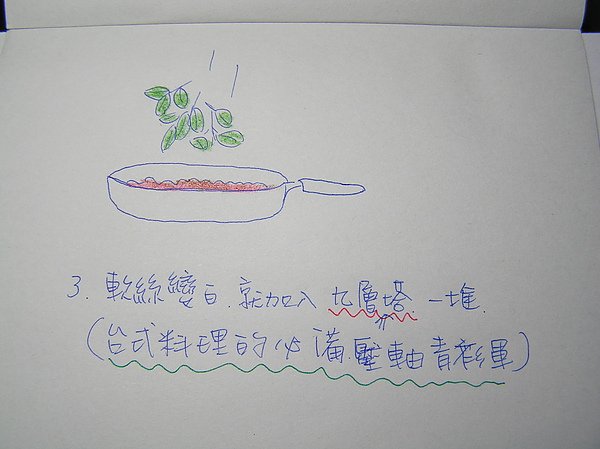 3. 軟絲變白.就加入 九層塔 一堆.
(台式料理的必備壓軸青軍)